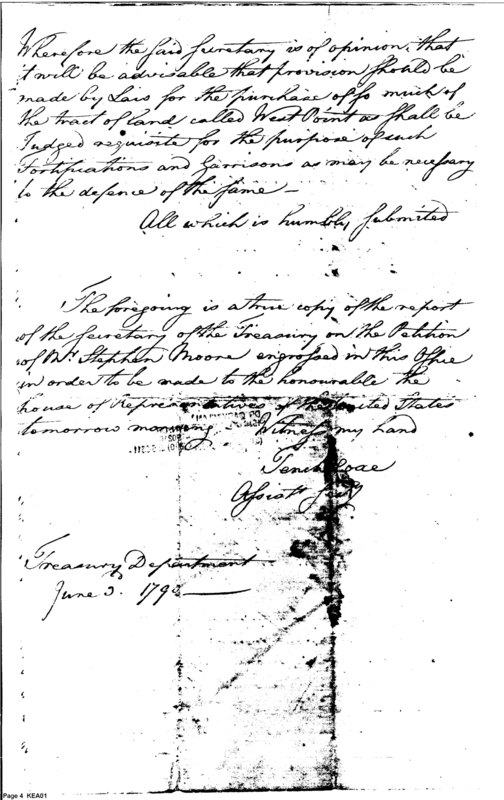 Wherefore the said Secretary is of opinion, that
it will be advisable that provision should be
made by Law for the purchase of so much of
the tract of land called West Point as shall be
Judged requisite for the purpose of such
Fortifications and Garrisons as may be necessary
to the defence of the same —
All which is humbly submited
The foregoing is a true copy of the report
of the Secretary of the Treasury on the Petition
of Mr Stephen Moore engrossed in this Office
in order to be made to the honourable the
house of Representatives of the United States
tomorrow morning. Witness my hand
Tench Coxe
Assistt Secy
Treasury Department
June 3. 1790 —
Page 4 KEA01